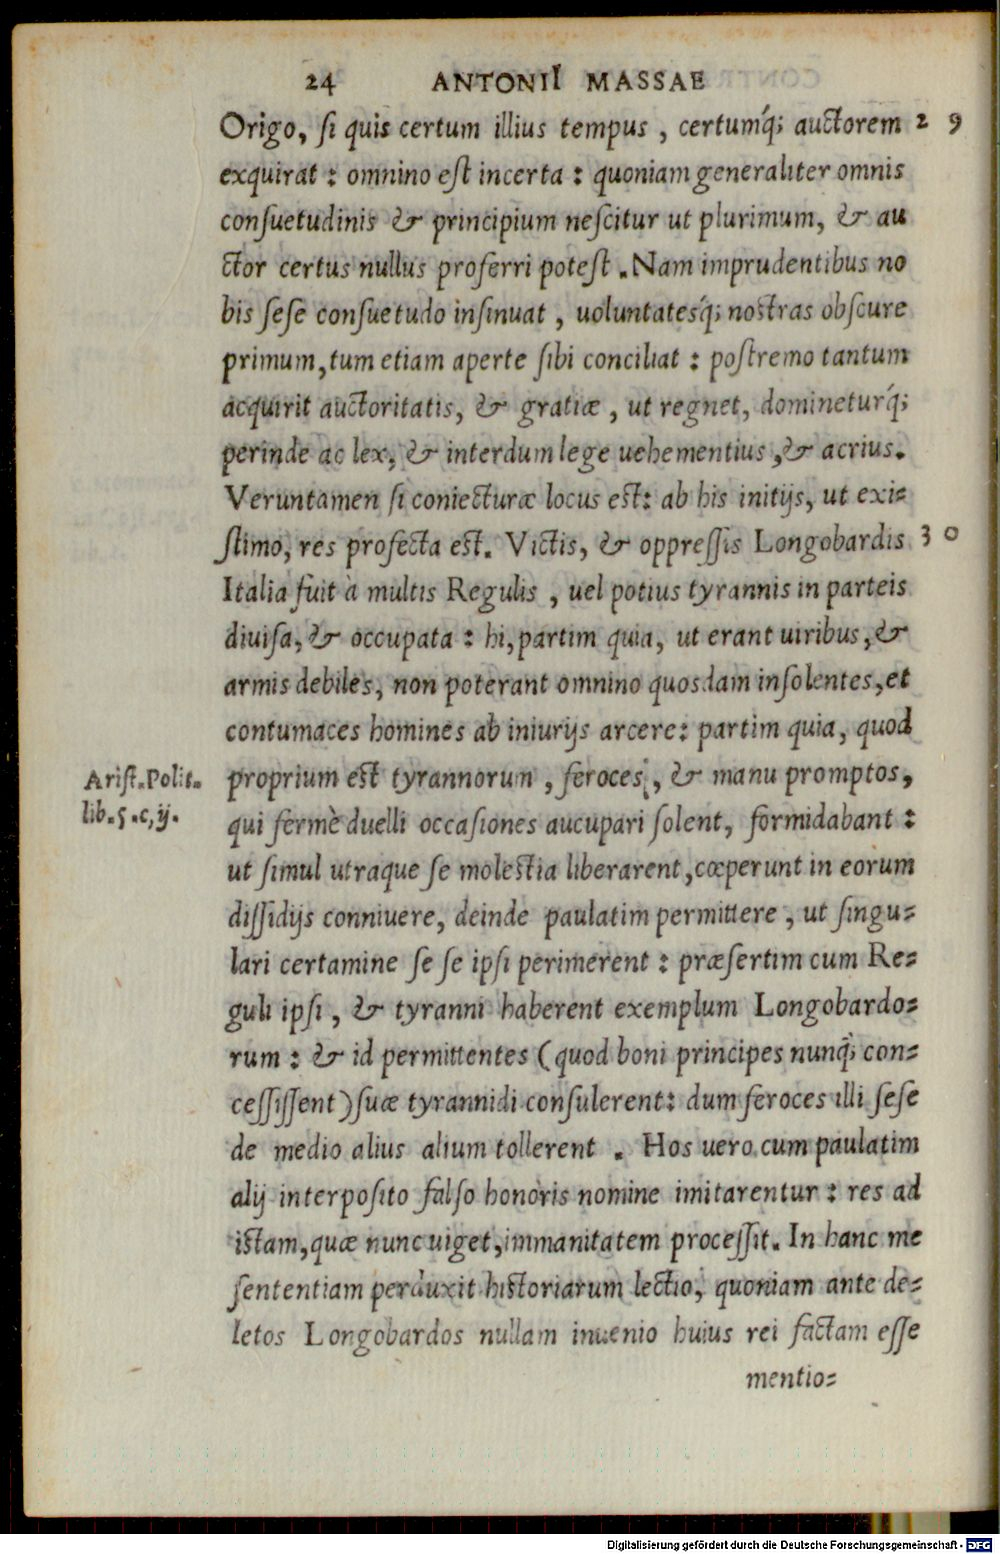 24 ANTONII MASSAE
Origo, ſi quis certum illius tempus, certumq́; auctorem 29
exquirat: omnino eſt incerta: quoniam generaliter omnis
conſuetudinis & principium neſcitur ut plurimum, & au
ctor certus nullus proferri poteſt. Nam imprudentibus no
bis ſeſe conſuetudo inſinuat, uoluntatesq́; noſtras obſcure
primum, tum etiam aperte ſibi conciliat: poſtremo tantum
acquirit auctoritatis, & gratiæ, ut regnet, domineturq́;
perinde ac lex, & interdum lege uehementius, & acrius.
Veruntamen ſi coniecturæ locus eſt: ab his initijs, ut exi=
ſtimo, res profecta eſt. Victis, & oppreſſis Longobardis 30
Italia fuit à multis Regulis, uel potius tyrannis in parteis
diuiſa, & occupata: hi, partim quia, ut erant uiribus, &
armis debiles, non poterant omnino quosdam inſolentes, et
contumaces homines ab iniurijs arcere: partim quia, quod
Ariſt. Polit. proprium eſt tyrannorum, feroces, & manu promptos,
lib. 5. c, ij. qui fermè duelli occaſiones aucupari ſolent, formidabant:
ut ſimul utraque ſe moleſtia liberarent, cœperunt in eorum
diſſidijs conniuere, deinde paulatim permittere, ut ſingu=
lari certamine ſe ſe ipſi perimerent: præſertim cum Re=
guli ipſi, & tyranni haberent exemplum Longobardo=
rum: & id permittentes (quod boni principes nunq̀; con=
ceſſiſſent) ſuæ tyrannidi conſulerent: dum feroces illi ſeſe
de medio alius alium tollerent. Hos uero cum paulatim
alij interpoſito falſo honoris nomine imitarentur: res ad
iſtam, quæ nunc uiget, immanitatem proceſſit. In hanc me
ſententiam perduxit hiſtoriarum lectio, quoniam ante de=
letos Longobardos nullam inuenio huius rei factam eſſe
mentio=
Digitalisierung gefördert durch die Deutsche Forschungsgemeinschaft - DFG